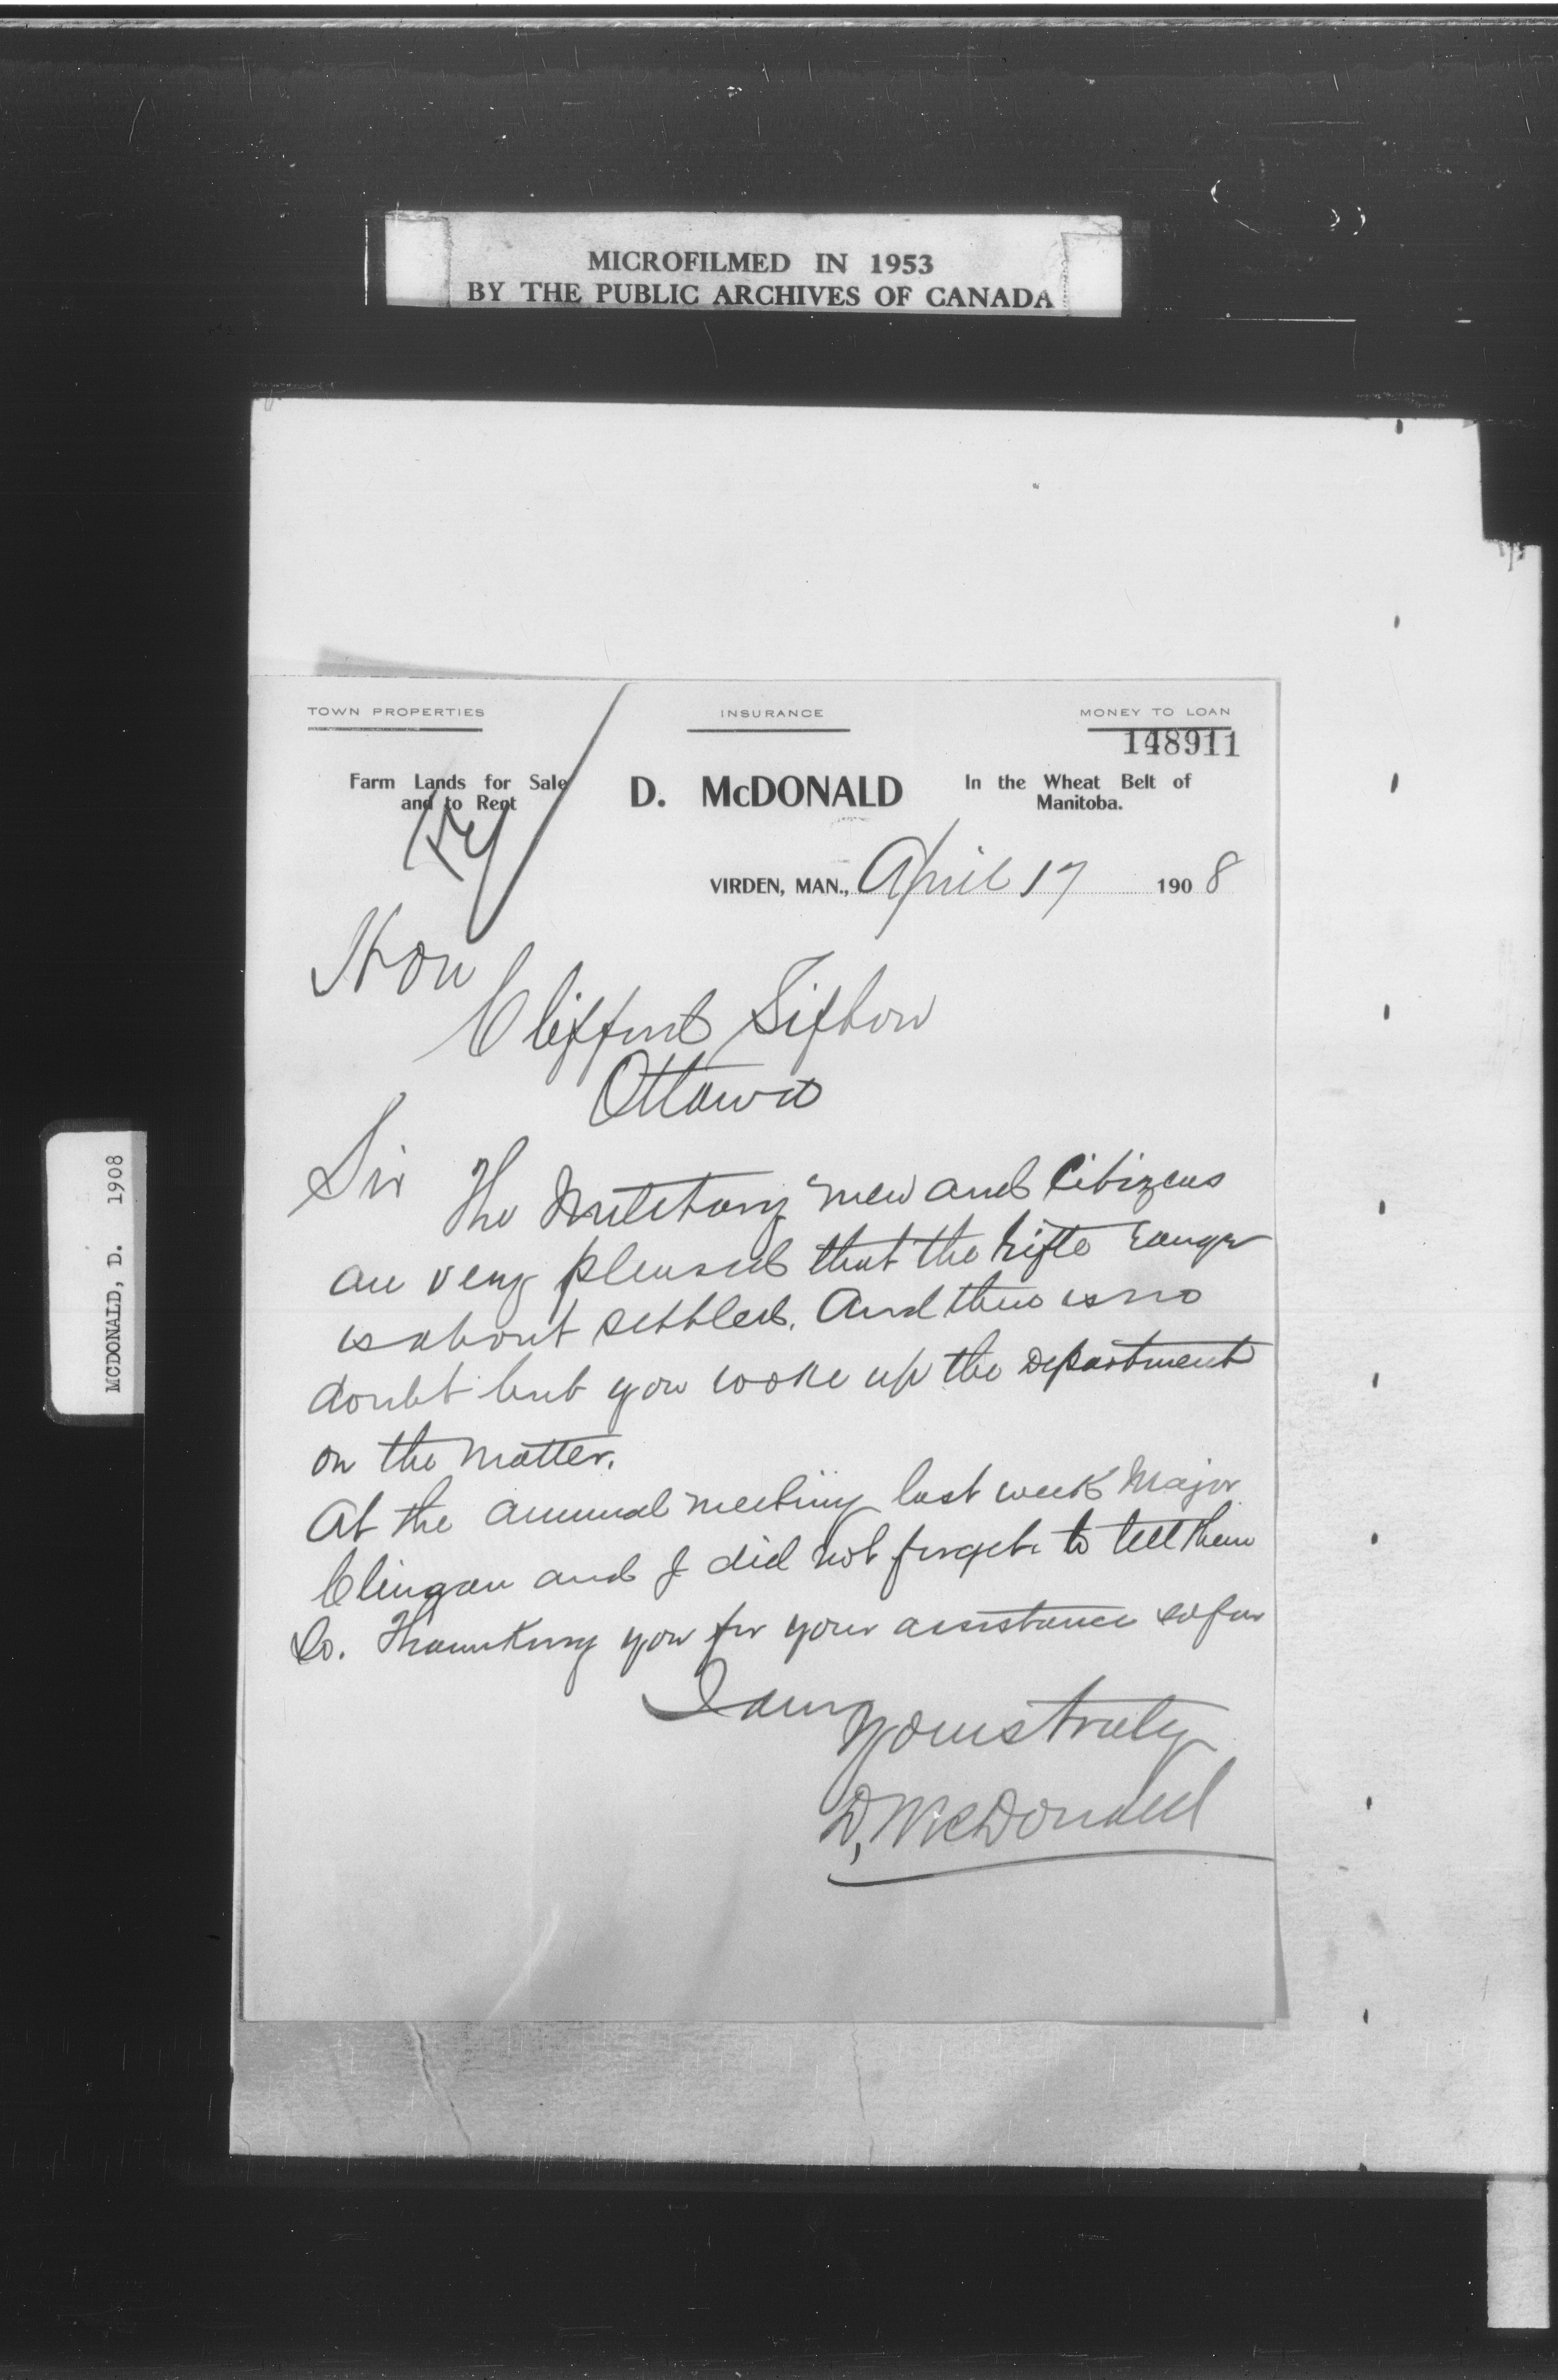 MICROFILMED IN 1953
BY THE PUBLIC ARCHIVES OF CANADA
TOWN PROPERTIES
INSURANCE
MONEY TO LOAN
148911
Farm Lands for Sale
and to Rent
D. McDONALD
In the Wheat Belt of
Manitoba.
VIRDEN, MAN., April 17 1908
Hon
Clifford Sifton
Ottawa
Sir The Military men and Citizens
are very pleased that the rifle range
is about settled. And there is no
doubt but you woke up the Department
on the matter.
At the annual meeting last week Major
Clingan and I did not forget to tell them
So. Thanking you for your assistance so far
I am
Yours truly
D. McDonald
MCDONALD, D. 1908